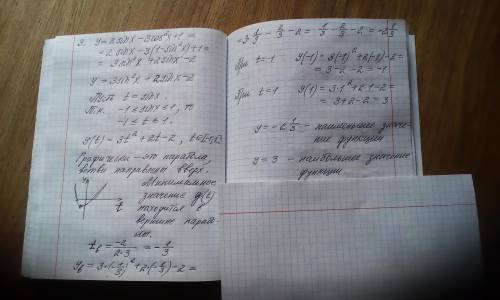 3. y = 2 sinx - 3cos²x + 1 =
= 2 sinx - 3(1 - sin²x) + 1 =
= 3sin²x + 2sinx - 2
y = 3sin²x + 2sinx - 2
Пусть t = sinx.
Т.к. -1 ≤ sinx ≤ 1, то
-1 ≤ t ≤ 1.
y(t) = 3t² + 2t - 2, t∈[-1;1]
Графически - это парабола,
ветви направлены вверх.
y
Минимальное
значение y(t)
t
находится в
вершине парабо-
лы.
t_в = -2/(2·3) = -1/3
y_в = 3·(-1/3)² + 2·(-1/3) - 2 =
= 3·1/9 - 2/3 - 2 = 1/3 - 2/3 - 2 = -2 1/3
При t = -1 y(-1) = 3(-1)² + 2(-1) - 2 =
= 3 - 2 - 2 = -1
При t = 1 y(1) = 3·1² + 2·1 - 2 =
= 3 + 2 - 2 = 3
y = -2 1/3 - наименьшее значе-
ние функции
y = 3 - наибольшее значение
функции